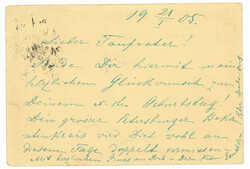 19 21/I 05.
Lieber Taufvater!
Dir hiermit meine
herzlichen Glückwunsch zu
Deinem Geburtstag!
Dein grosser Petersburger Bekann
tenkreis wird Dich wohl an
diesem Tage doppelt vermissen.
Mit herzlichem Gruss an Dich u.